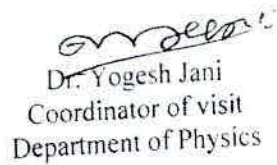 Dr. Yogesh Jani
Coordinator of visit
Department of Physics